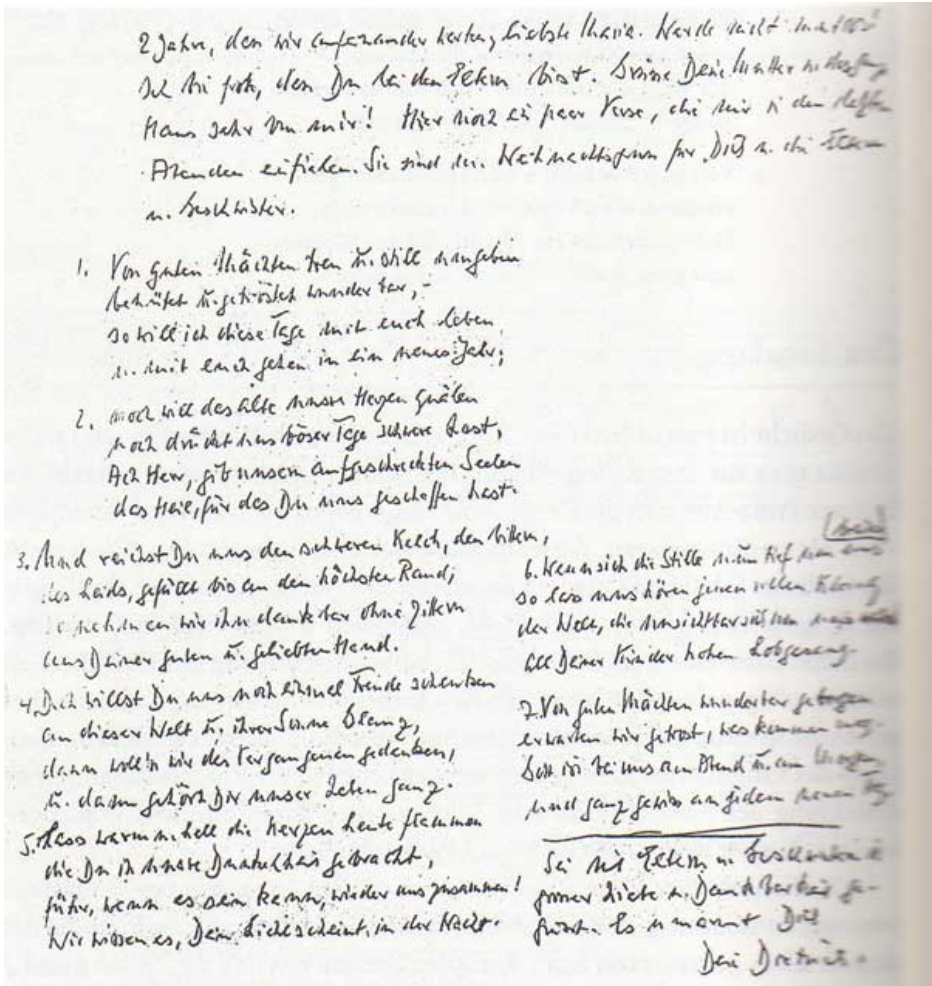 2 Jahre, dass wir aufeinander warten, liebste Maria. Werde nicht mutlos!
Ich bin froh, dass Du bei den Eltern bist. Grüsse Deine Mutter u. das ganze
Haus sehr von mir! Hier noch ein paar Verse, die mir in den letzten
Abenden einfielen. Sie sind der Weihnachtsgruss für Dich u. die Eltern
u. Geschwister.
1. Von guten Mächten treu u. still umgeben
behütet u. getröstet wunderbar, –
so will ich diese Tage mit euch leben
u. mit euch gehen in ein neues Jahr;
2. noch will das alte unsre Herzen quälen
noch drückt uns böser Tage schwere Last,
Ach Herr, gib unsern aufgeschreckten Seelen
das Heil, für das Du uns geschaffen hast.
3. Und reichst Du uns den schweren Kelch, den bittern,
des Leids, gefüllt bis an den höchsten Rand,
so nehmen wir ihn dankbar ohne Zittern
aus Deiner guten u. geliebten Hand.
4. Doch willst Du uns noch einmal Freude schenken
an dieser Welt u. ihrer Sonne Glanz,
dann woll'n wir des Vergangenen gedenken,
u. dann gehört Dir unser Leben ganz.
5. Lass warm u. hell die Kerzen heute flammen
die Du in unsre Dunkelheit gebracht,
führ, wenn es sein kann, wieder uns zusammen!
Wir wissen es, Dein Licht scheint in der Nacht.
6. Wenn sich die Stille nun tief um uns
so lass uns hören jenen vollen Klang
der Welt, die unsichtbar sich um
all Deiner Kinder hohen Lobgesang.
7. Von guten Mächten wunderbar geborgen
erwarten wir getrost, was kommen mag.
Gott ist bei uns am Abend u. am Morgen
und ganz gewiss an jedem neuen Tag.
Sei mit Eltern u. Geschwistern in
grosser Liebe u. Dankbarkeit ge-
grüsst. Es umarmt Dich
Dein Dietrich.